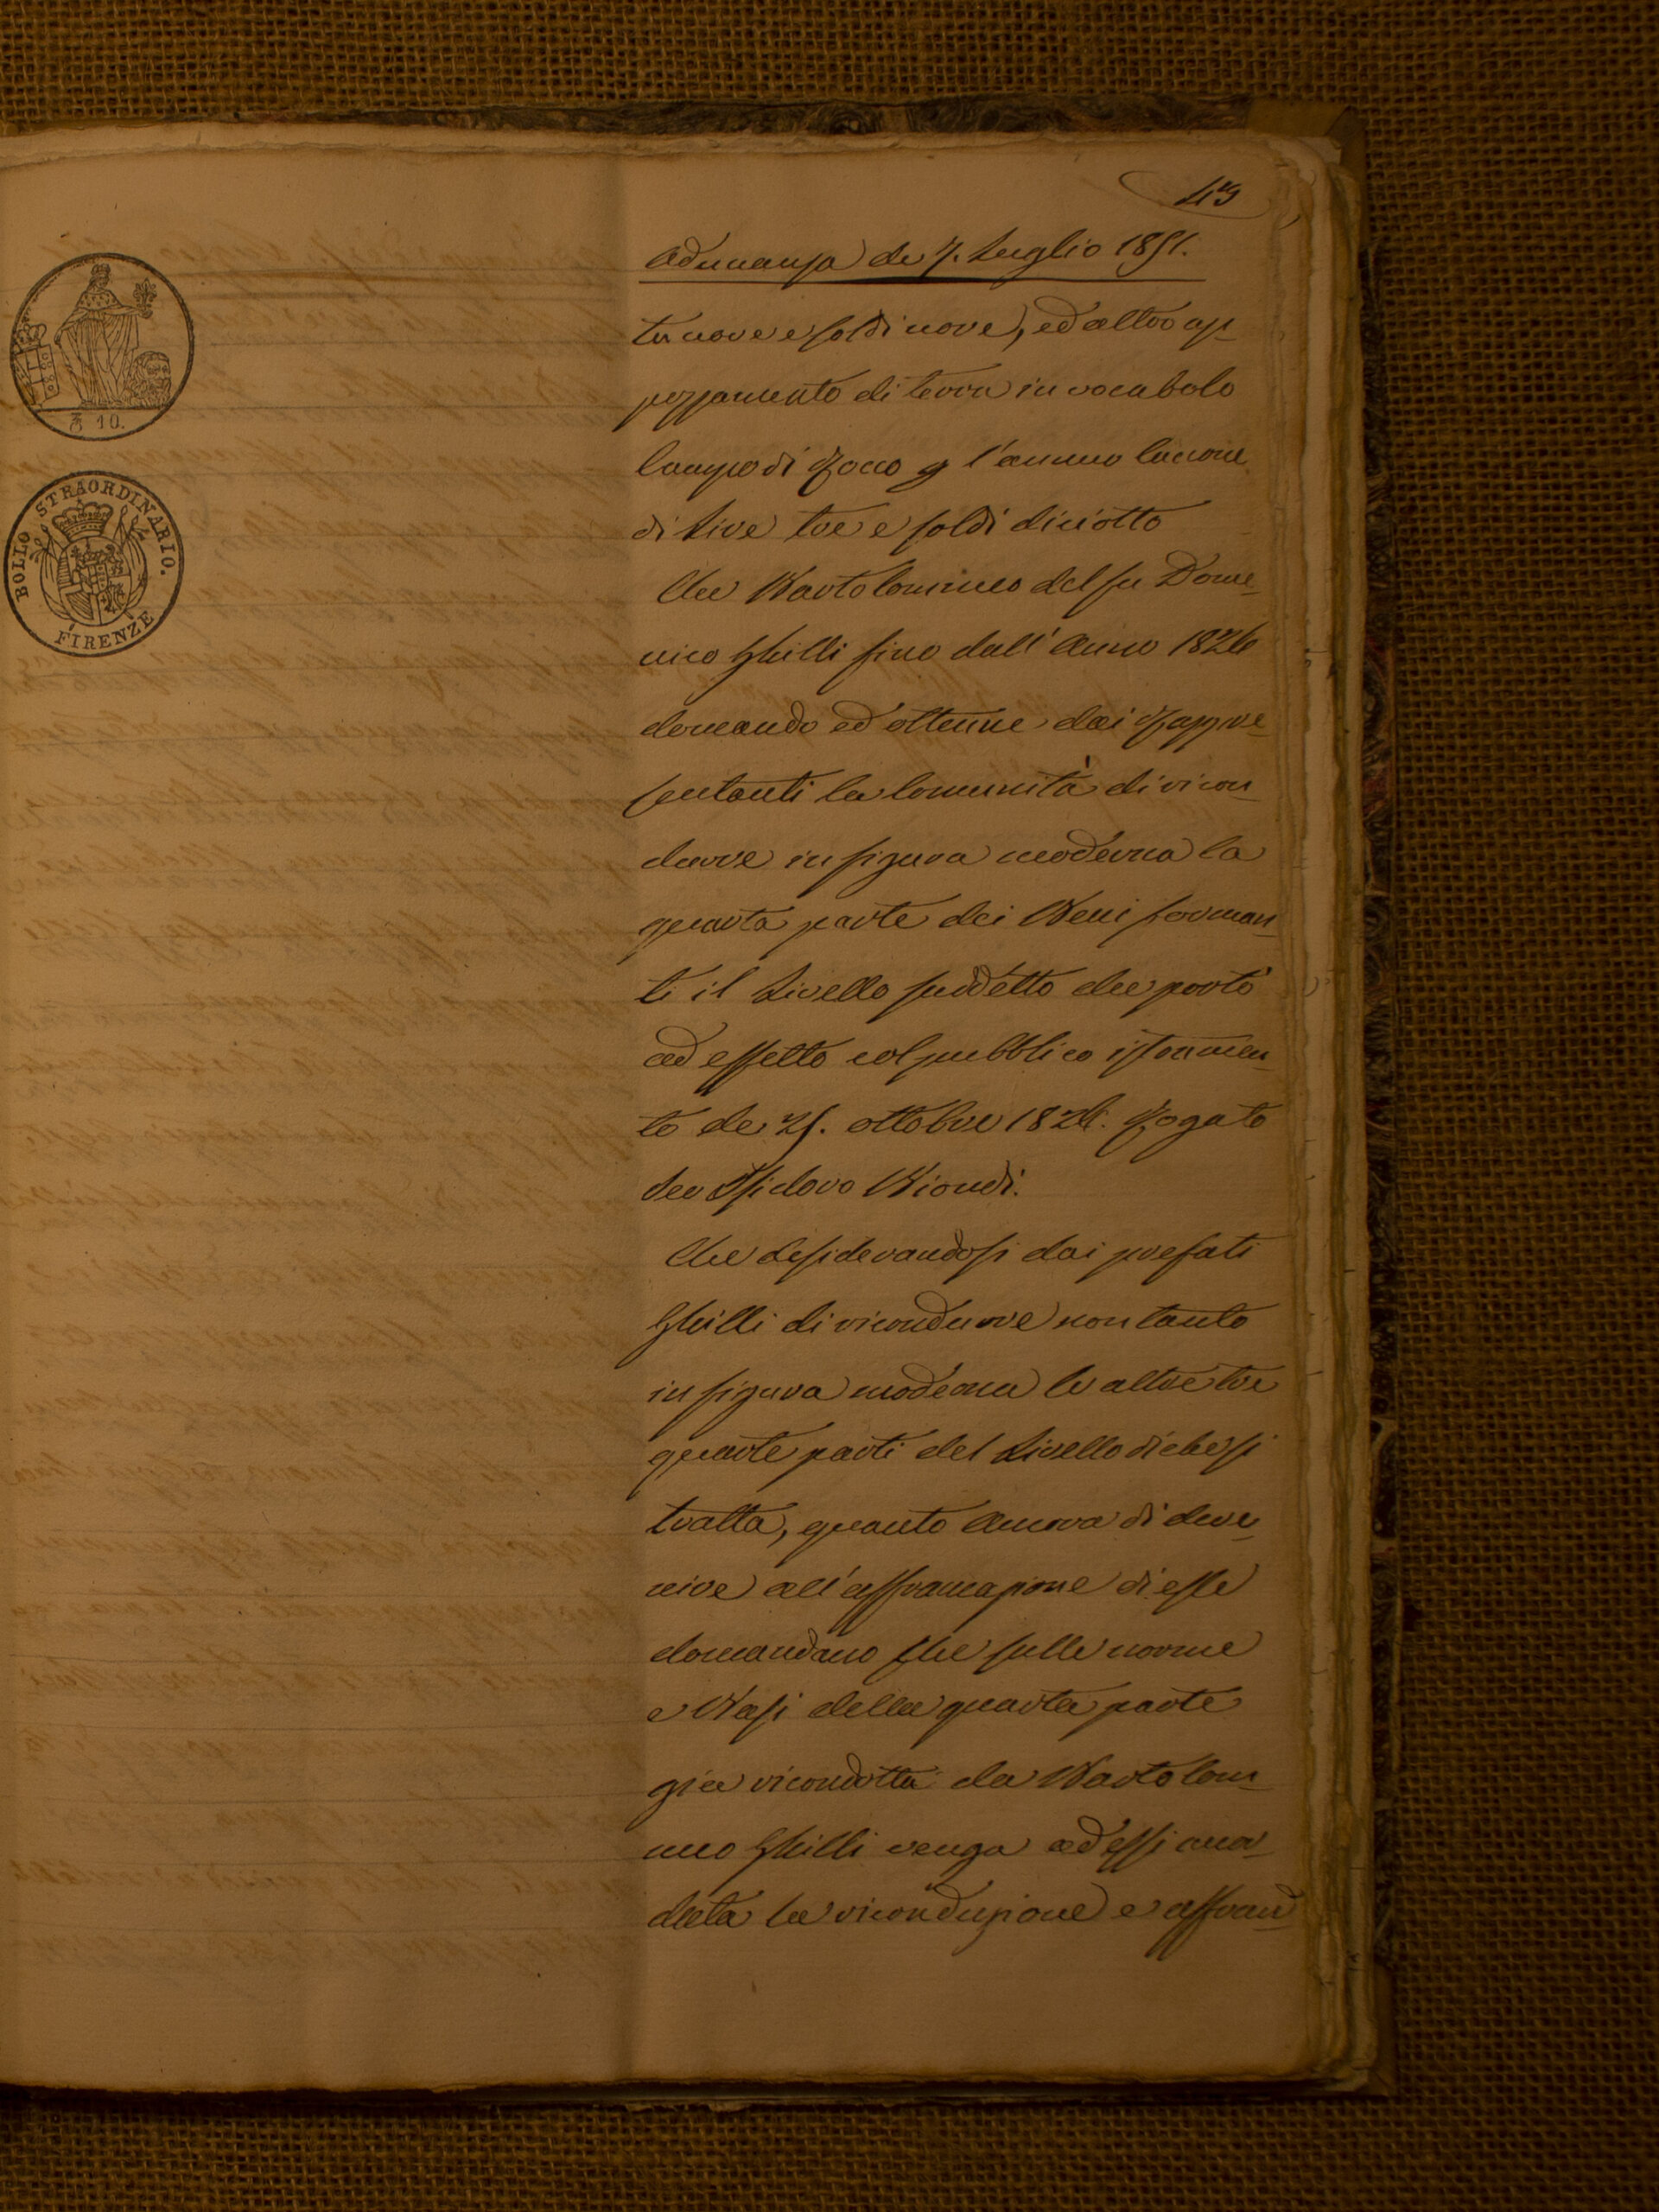 43
Adunanza de 7. Luglio 1851.
ta nove e soldi nove, ed altro ap-
pezzamento di terra in vocabolo
Campo di Rocco p l'annuo Canone
di Lire tre e soldi diciotto
Che Bartolommeo del fu Dome-
nico Ghilli fino dall'Anno 1826
domandò ed ottenne dai Rappre-
sentanti la Comunità di ricon-
durre in figura moderna la
quarta parte dei Beni forman-
ti il Livello suddetto che portò
ad effetto col pubblico istrumen-
to de 25. ottobre 1826. Rogato
Ser Isidoro Biondi.
Che desiderandosi dai prefati
Ghilli di ricondurre non tanto
in figura moderna le altre tre
quarte parti del Livello di che si
tratta, quanto ancora di deve-
nire all'affrancazione di esse
domandano che sulle norme
e Basi della quarta parte
già ricondotta da Bartolom-
meo Ghilli venga ad essi acca-
data la riconduzione e affran-
10.
BOLLO STRAORDINARIO.
FIRENZE